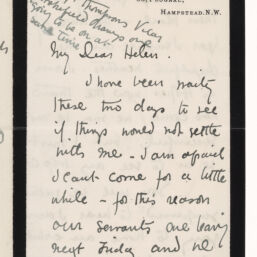 HAMPSTEAD. N.W.
Thompsons
going to be on at
same time
My Dear Helen.
I have been waiting
these two days to see
if things would not settle
with me - I am afraid
I can't come for a little
while - for this reason
our servants are leaving
next Friday and we